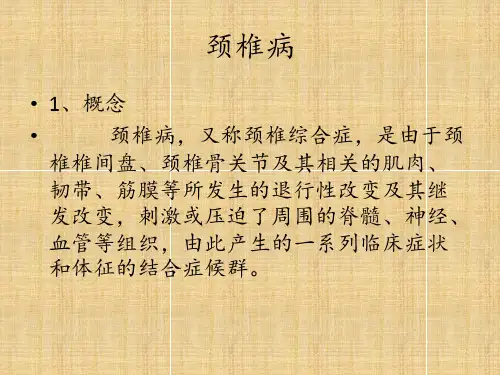 颈椎病
• 1、概念
• 颈椎病，又称颈椎综合症，是由于颈
椎椎间盘、颈椎骨关节及其相关的肌肉、
韧带、筋膜等所发生的退行性改变及其继
发改变，刺激或压迫了周围的脊髓、神经、
血管等组织，由此产生的一系列临床症状
和体征的结合症候群。